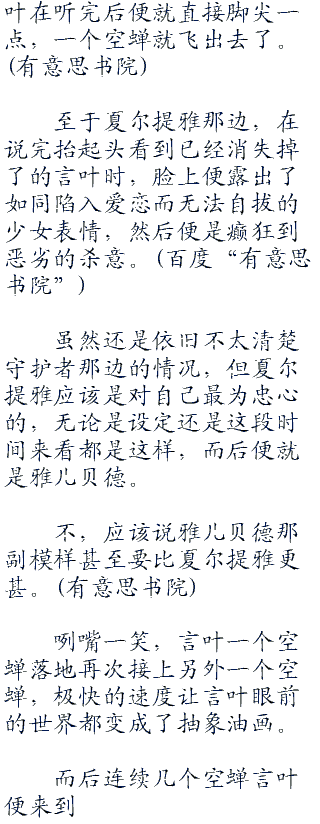 叶在听完后便就直接脚尖一
点，一个空蝉就飞出去了。
(有意思书院)
至于夏尔提雅那边，在
说完抬起头看到已经消失掉
了的言叶时，脸上便露出了
如同陷入爱恋而无法自拔的
少女表情，然后便是癫狂到
恶劣的杀意。(百度“有意思
书院”)
虽然还是依旧不太清楚
守护者那边的情况，但夏尔
提雅应该是对自己最为忠心
的，无论是设定还是这段时
间来看都是这样，而后便就
是雅儿贝德。
不，应该说雅儿贝德那
副模样甚至要比夏尔提雅更
甚。(有意思书院)
咧嘴一笑，言叶一个空
蝉落地再次接上另外一个空
蝉，极快的速度让言叶眼前
的世界都变成了抽象油画。
而后连续几个空蝉言叶
便来到